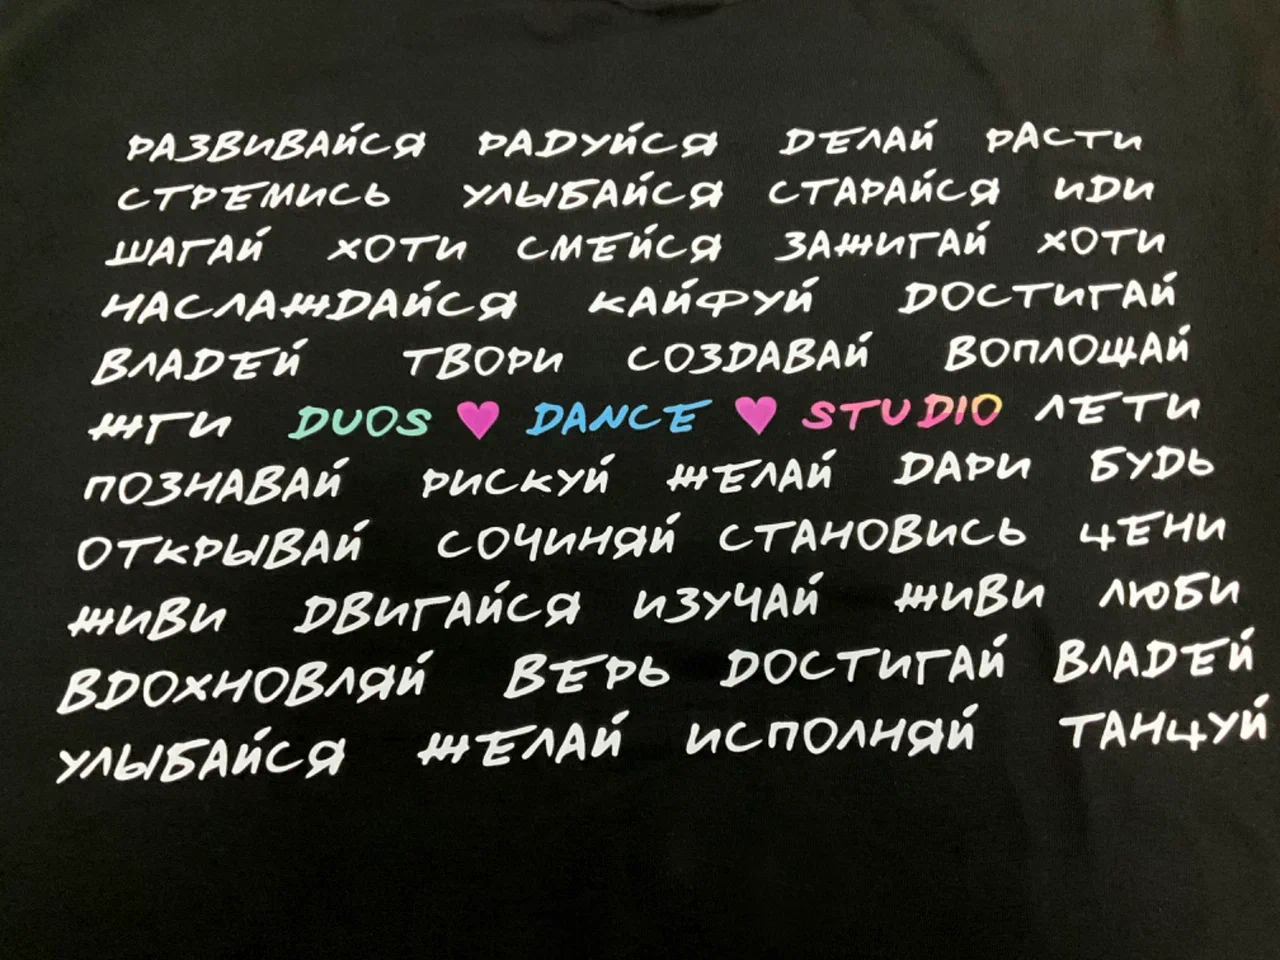 РАЗВИВАЙСЯ РАДУЙСЯ ДЕЛАЙ РАСТИ
СТРЕМИСЬ УЛЫБАЙСЯ СТАРАЙСЯ ИДИ
ШАГАЙ ХОТИ СМЕЙСЯ ЗАЖИГАЙ ХОТИ
НАСЛАЖДАЙСЯ КАЙФУЙ ДОСТИГАЙ
ВЛАДЕЙ ТВОРИ СОЗДАВАЙ ВОПЛОЩАЙ
ЖГИ DUOS ♥ DANCE ♥ STUDIO ЛЕТИ
ПОЗНАВАЙ РИСКУЙ ЖЕЛАЙ ДАРИ БУДЬ
ОТКРЫВАЙ СОЧИНЯЙ СТАНОВИСЬ ЦЕНИ
ЖИВИ ДВИГАЙСЯ ИЗУЧАЙ ЖИВИ ЛЮБИ
ВДОХНОВЛЯЙ ВЕРЬ ДОСТИГАЙ ВЛАДЕЙ
УЛЫБАЙСЯ ЖЕЛАЙ ИСПОЛНЯЙ ТАНЦУЙ